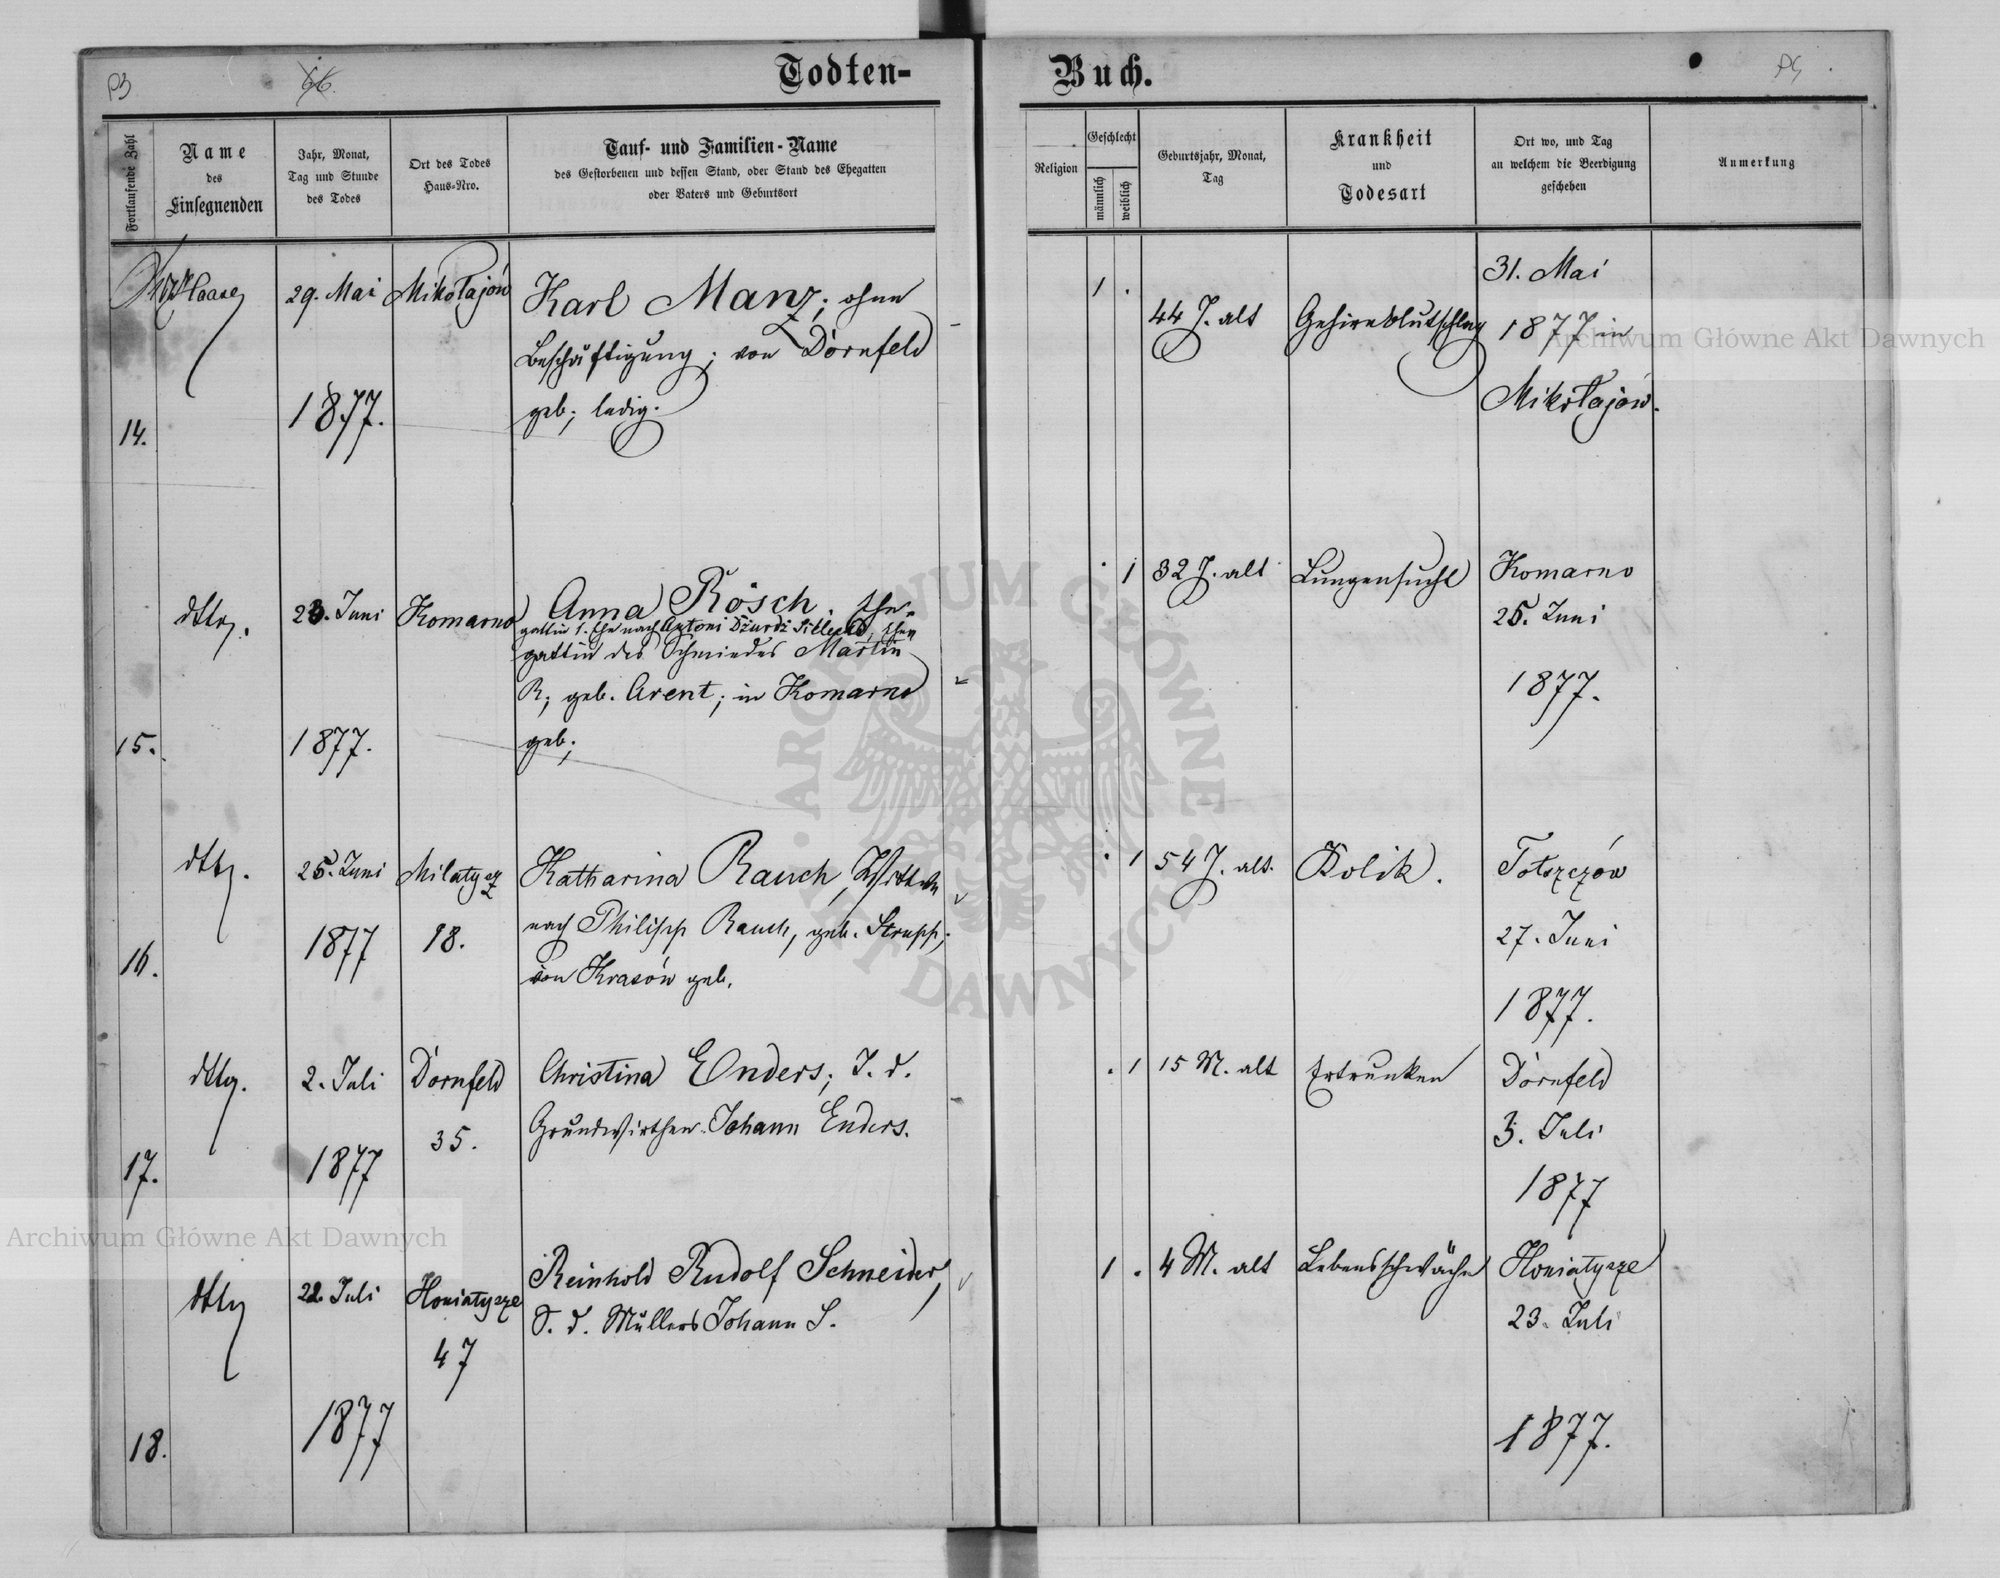 Todten-
Buch.
Fortlaufende Zahl
Name
des
Einsegnenden
Jahr, Monat,
Tag und Stunde
des Todes
Ort des Todes
Haus-Nro.
Tauf- und Familien-Name
des Gestorbenen und dessen Stand, oder Stand des Ehegatten
oder Vaters und Geburtsort
Religion
Geschlecht
männlich
weiblich
Geburtsjahr, Monat,
Tag
Krankheit
und
Todesart
Ort wo, und Tag
an welchem die Beerdigung
geschehen
Anmerkung
14.
29. Mai
1877.
Mikołajów
Karl Manz; ohne
Beschäftigung; von Dornfeld
geb; ledig.
1 .
44 J. alt
Gehirnblutschlag
31. Mai
1877 in
Mikołajów.
15.
dtto.
23. Juni
1877.
Komarno
Anna Rösch, Ehe-
gattin 1. Ehe nach Antoni
gattin des Schmiedes Martin
R; geb. Arent; in Komarno
geb;
. 1
32 J. alt
Lungensucht
Komarno
25. Juni
1877.
16.
dtto.
25. Juni
1877
Milatycz
18.
Katharina Rauch, Wittwe
nach Philipp Rauch, geb. Strupp;
von Krasów geb.
. 1
54 J. alt.
Kolik.
27. Juni
1877.
17.
dtto.
2. Juli
1877
Dornfeld
35.
Christina Enders; T. d.
Grundwirthen Johann Enders.
. 1
15 M. alt
Ertrunken
Dornfeld
3. Juli
1877
18.
dtto
22. Juli
1877
Honiatycze
47
Reinhold Rudolf Schneider,
S. d. Müllers Johann S.
1 .
4 M. alt
Lebensschwäche
Honiatycze
23. Juli
1877.
Archiwum Główne Akt Dawnych
Archiwum Główne Akt Dawnych
ARCHIWUM GŁÓWNE AKT DAWNYCH